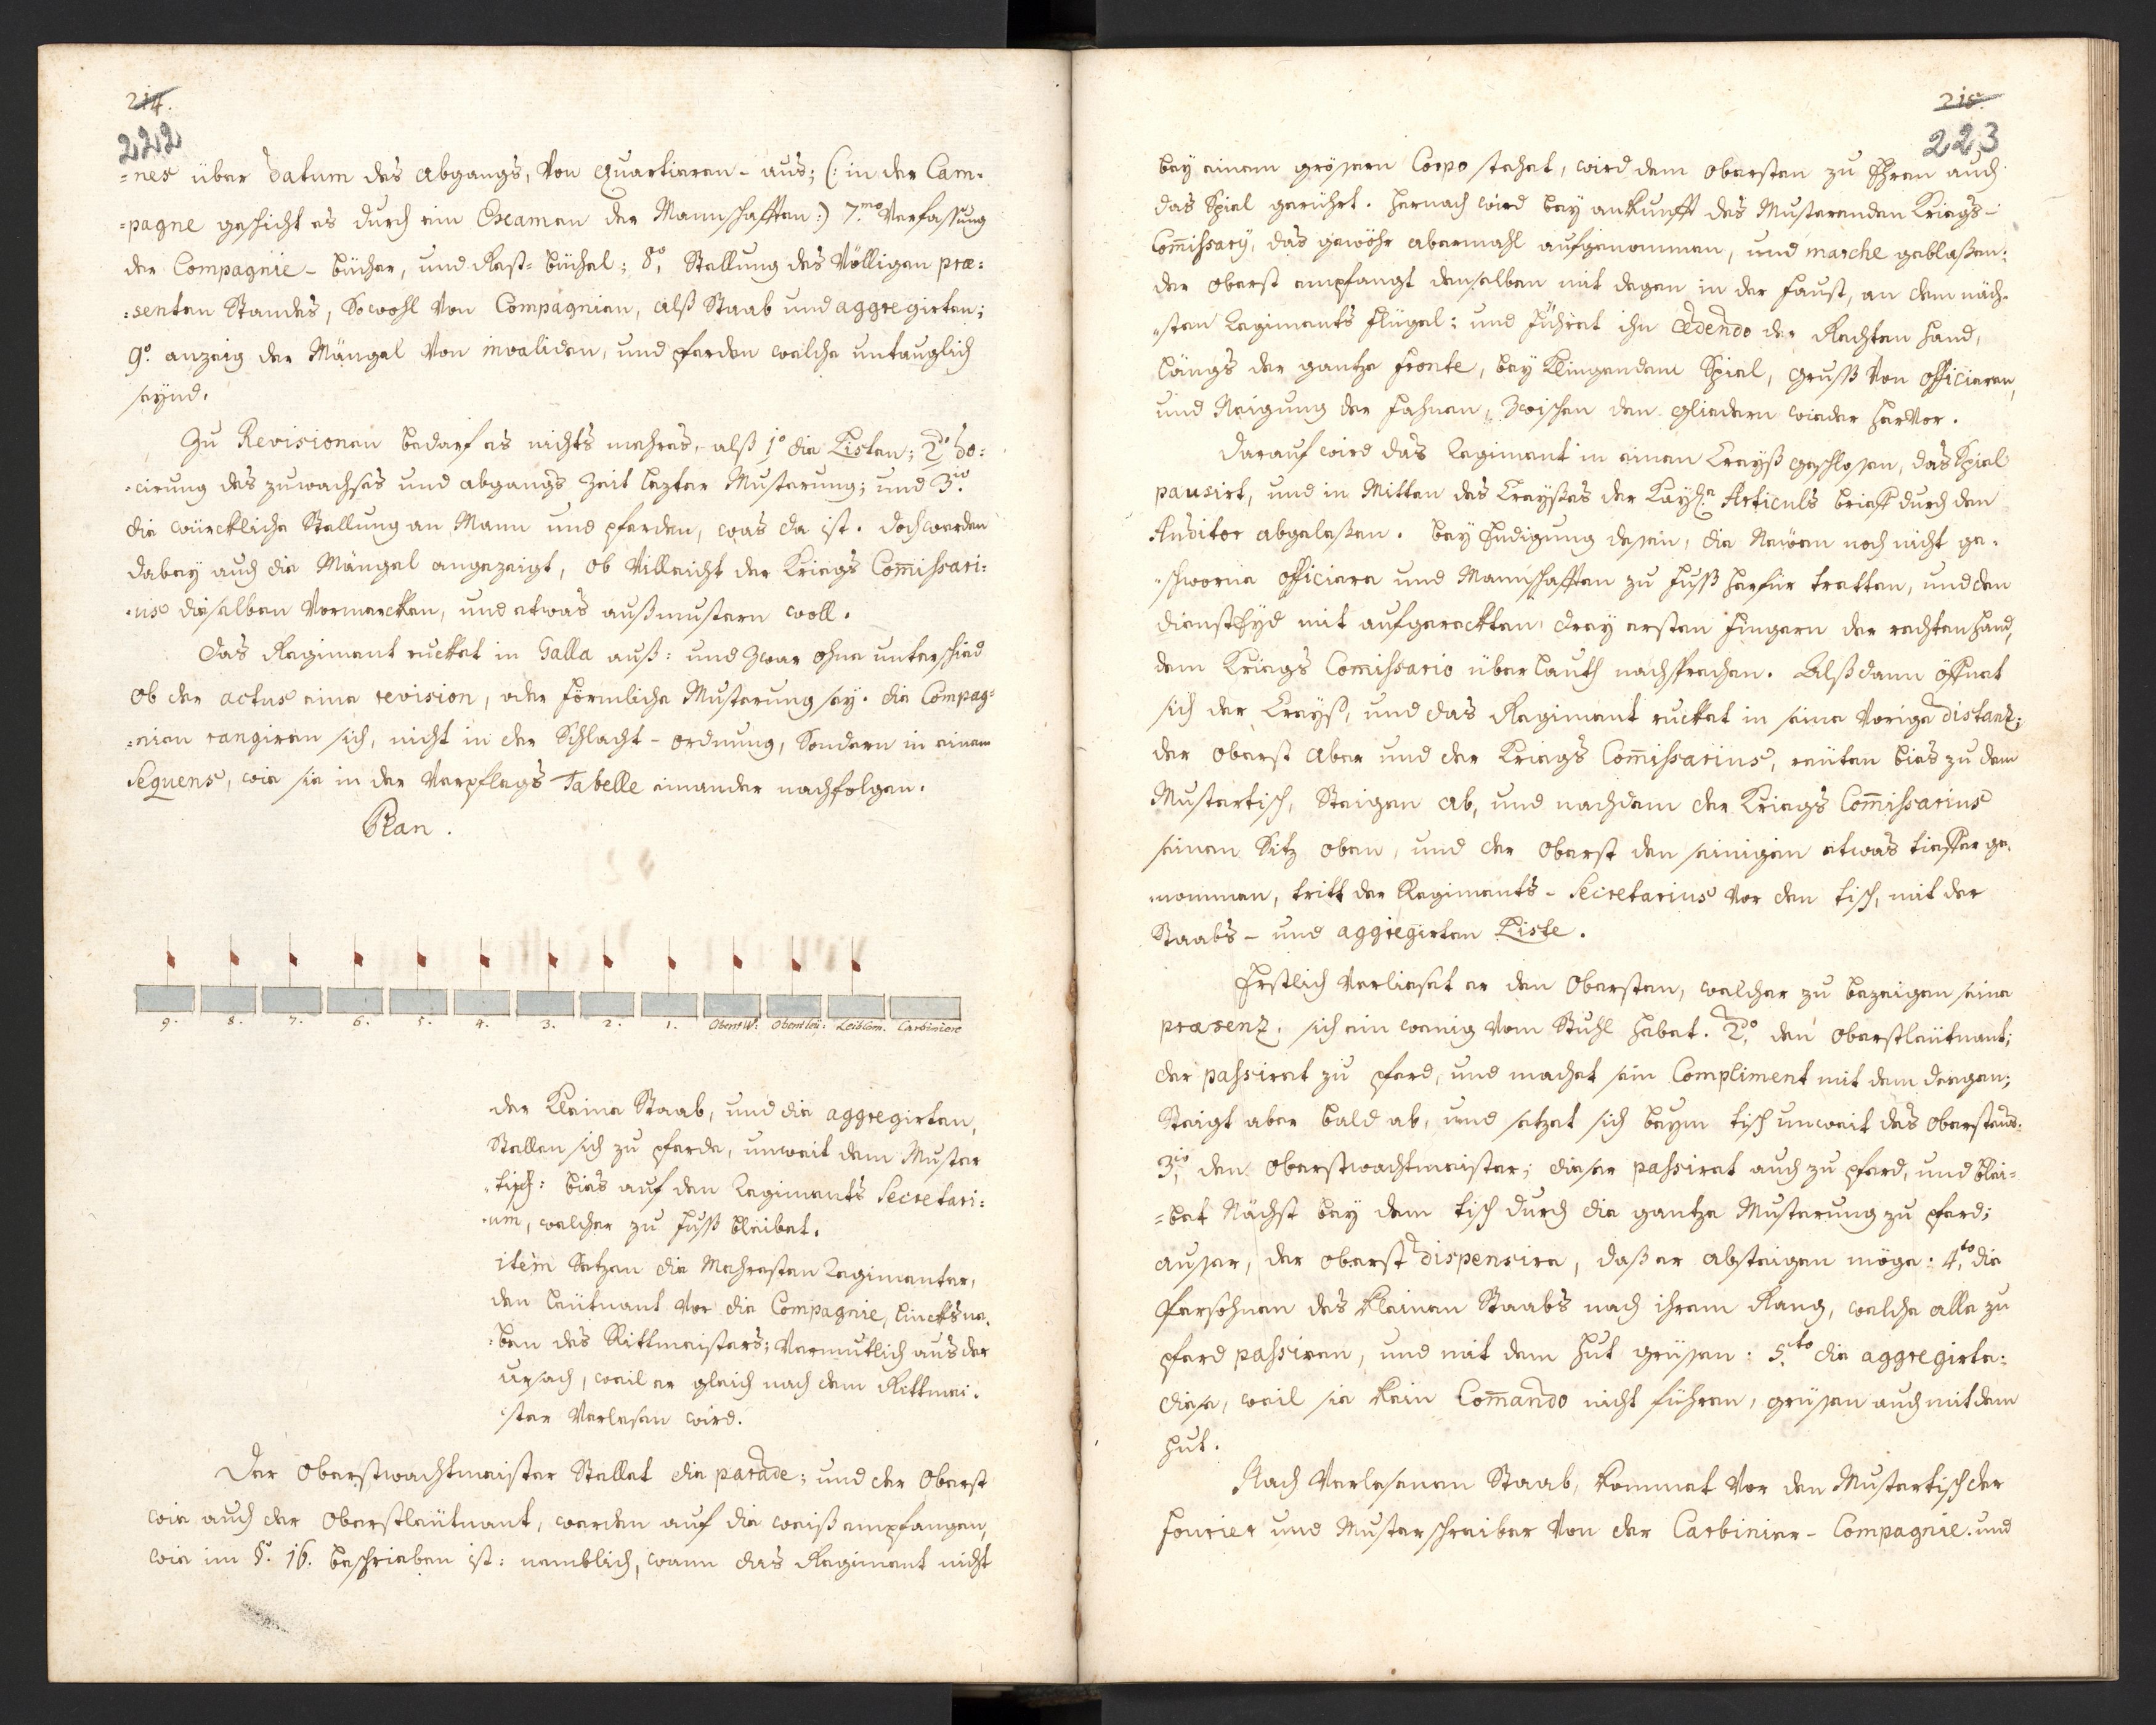 214.
222
=nes über datum des abgangs, Von quartieren - aus; (: in der Cam-
=pagne geschicht es durch ein Examen der Mannschafften:) 7.mo Verfassung
der Compagnie - bücher, und Rast= büchel; 8o, Stellung des Völligen præ:
:senten Standes, Sowohl Von Compagnien, alß Staab und aggregirten;
9o. anzeig der Mängel Von invaliden, und pferden welche untauglich
seynd.
Zu Revisionen bedarf es nichts mehres, alß 1o die Listen; 2do do:
:cirung des zuwachses und abgangs Zeit lezter Musterung; und 3.io
die würckliche Stellung an Mann und pferden, was da ist. doch werden
dabey auch die Mängel angezeigt, ob Villeicht der Kriegs Com̄issari:
:us dieselben Vormercken, und etwas außmustern woll.
das Regiment rucket in Galla auß: und Zwar ohne unterschied
ob der actus eine revision, oder förmliche Musterung sey. die Compag=
:nien rangiren sich, nicht in der Schlacht - ordnung, Sondern in einem
Sequens, wie sie in der Verpflegs Tabelle einander nachfolgen.
Plan.
9. 8. 7. 6. 5. 4. 3. 2. 1. Oberst W: Oberst leü: Leib Com. Carbiniere
der Kleine Staab, und die aggregirten,
Stellen sich zu pferde, unweit dem Muster
:tisch: bies auf den Regiments Secretari:
:um, welcher zu fuß bleibet.
item Setzen die Mehresten Regimenter,
den leütnant Vor die Compagnie, lincks ne-
:ben des Rittmeisters; Vermutlich aus der
ursach, weil er gleich nach dem Rittmei-
:ster Verlesen wird.
Der Oberstwachtmeister Stellet die parade; und der Oberst
wie auch der Oberstleütnant, werden auf die weiß empfangen,
wie im §. 16. beschrieben ist: nemblich, wann das Regiment nicht
215.
223
bey einem grössern Corpo stehet, wird dem obersten zu Ehren auch
das Spiel gerührt. hernach wird bey ankunfft des Musterenden Kriegs-
Com̄issarÿ, das gewöhr abermahl aufgenommen, und marche geblaßen:
der oberst empfangt denselben mit degen in der faust, an dem näch-
:sten Regiments flügel: und führet ihn cedendo der Rechten hand,
längs der gantze fronte, bey Klingendem Spiel, gruß Von officieren,
und Neigung der fahnen, Zwischen den gliedern wieder herVor.
darauf wird das Regiment in einen Creyß geschlossen, das Spiel
pausirt, und in Mitten des Creyßes der Kay: Articuls brieff durch den
Auditor abgelesen. bey Endigung dessen, die Neüen noch nicht ge-
:schworne officiere und Mannschafften zu fuß herfür tretten, und den
diensteyd mit aufgereckten drey ersten fingern der rechten hand,
dem Kriegs Comissario überlauth nachsprechen. Alß dann öffnet
sich der Creyß, und das Regiment rucket in seine Vorige distanz;
der oberst aber und der Kriegs Com̄issarius, reüten bies zu dem
Mustertisch, Steigen ab, und nachdem der Kriegs Com̄issarius
seinen Sitz oben, und der Oberst den seinigen etwas tieffer ge-
:nommen, tritt der Regiments - Secretarius Vor den tisch, mit der
Staabs - und aggregirten Liste.
Erstlich Verlieset er den Obersten, welcher zu bezeigen seine
præsenz, sich ein wenig Vom Stuhl hebet. 2do, den Oberstleütnant;
der passiret zu pferd, und machet sein Compliment mit dem deegen;
Steigt aber bald ab, und setzet sich beym tisch unweit des Oberstens.
3io, den Oberstwachtmeister; dieser passiret auch zu pferd, und blei=
=bet Nächst bey dem tisch durch die gantze Musterung zu pferd;
ausser, der oberst dispensire, daß er absteigen möge: 4to, die
Persohnen des kleinen Staabs nach ihrem Rang, welche alle zu
pferd passiren, und mit dem hut grüssen: 5.to die aggregirte:
diese, weil sie kein Com̄ando nicht führen, grüssen auch mit dem
hut.
Nach Verlesenem Staab, kommet Vor den Mustertisch der
fourier und Musterschreiber Von der Carbinier - Compagnie. und